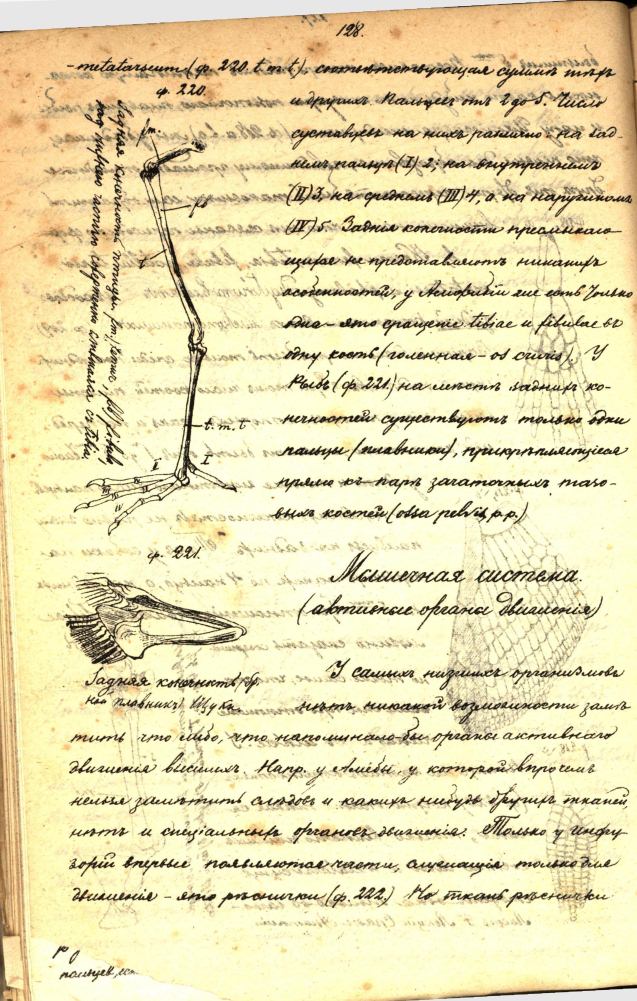 128.
-metatarseum (ф. 220. t. m. t), соотвѣтствующая суммѣ
ф. 220.
и другихъ. Пальцевъ отъ 2 до 5. Число
суставовъ на нихъ различно: на зад-
немъ пальцѣ (I) 2; на внутреннемъ
(II) 3, на среднемъ (III) 4, а на наружномъ
(IV) 5. Заднія конечности пресмыкаю-
щихся не представляютъ никакихъ
особенностей, у Амфибій же есть только
одна – это сращеніе tibiae и fibulae въ
одну кость (голенная – os cruris). У
Рыбъ (ф. 221.) на мѣстѣ заднихъ ко-
нечностей существуютъ только одни
пальцы (плавники), прикрѣпляющіеся
прямо къ парѣ зачаточныхъ тазо-
выхъ костей (ossa pelvis, p.p.)
Задняя конечность птицы. fm) бедро, fb) fibula
над нижнею
t
t. m. t
I
II
III
IV
ф. 221.
Задняя конечность (бр.
ной плавникъ) Щуки.
Мышечная система.
(активные органы движенія)
У самыхъ низшихъ организмовъ
нѣтъ никакой возможности замѣ-
тить что либо, что напоминало бы органы активнаго
движенія высшихъ. Напр. у Амёбы, у которой впрочемъ
нельзя замѣтить слѣдовъ и какихъ нибудь другихъ тканей,
нѣтъ и спеціальныхъ органовъ движенія. Только у инфу-
зорій впервые появляются части, служащія только для
движенія – это рѣснички (ф. 222.) Но ткань рѣснички
пальцев,